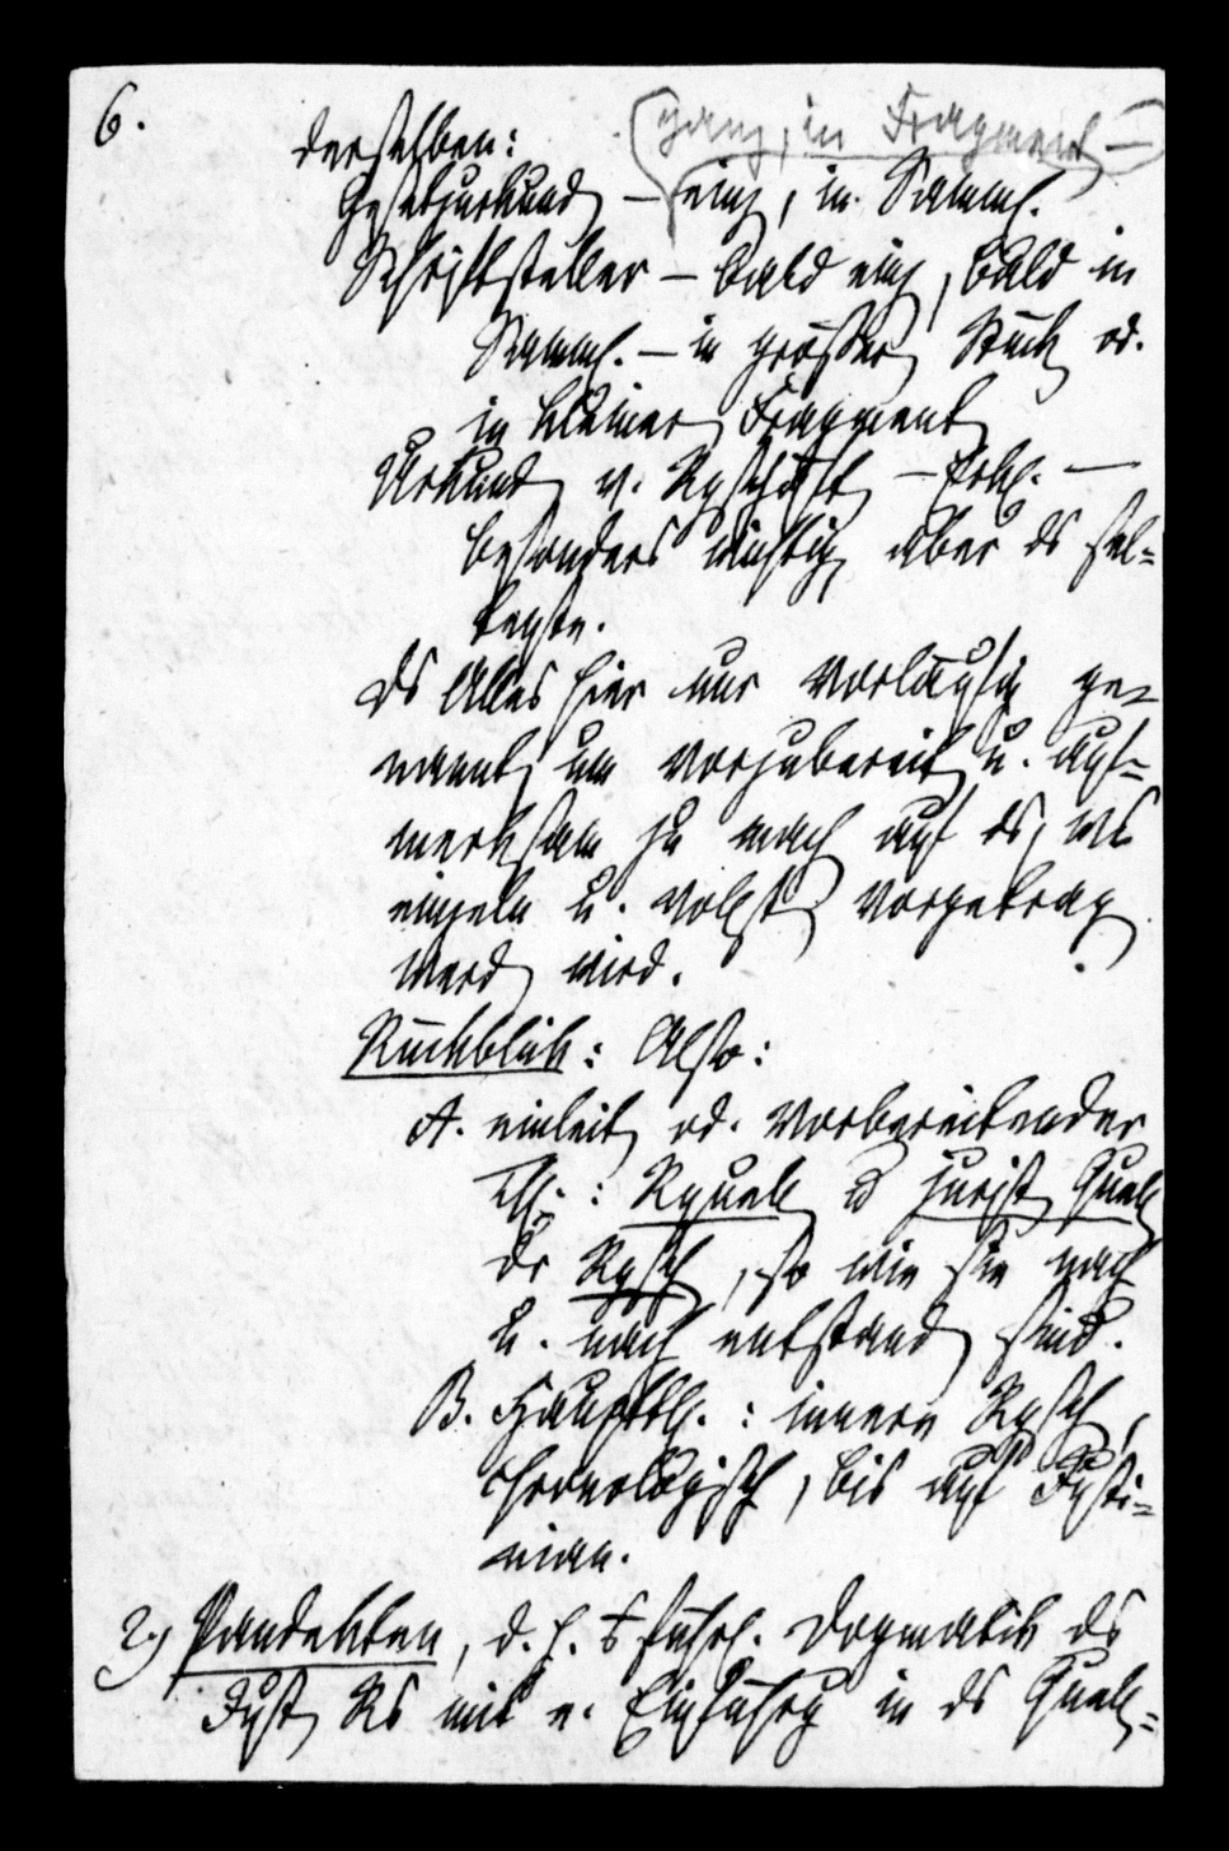 6.
derselben:
(ganz, in Fragment —)
Gesetzurkund — einz, in Samml.
Schriftsteller — bald einz, bald in
Samml. — in größer Stück od.
in kleiner Fragment
Urkund v. Rgschäft — Erkl. —
besonders wichtig aber ds sel-
tenste.
Ds Alles hier nur vorläufig ge-
nannt um vorzubereit u. auf-
merksam zu mach auf ds, ws
einzeln u. vollst vorgetrag
werd wird.
Rückblick: Also:
A. einleit od. vorbereitender
Th.: Rquell u jurist Quell
dr Rgsch, so wie sie nach
u. nach entstand sind.
B. Hauptth.: innere Rgsch,
chronologisch, bis auf Justi-
nian.
2) Pandekten, d. h. ausführl. Dogmatik ds
Just Rs mit e. Einführg in ds Quell-